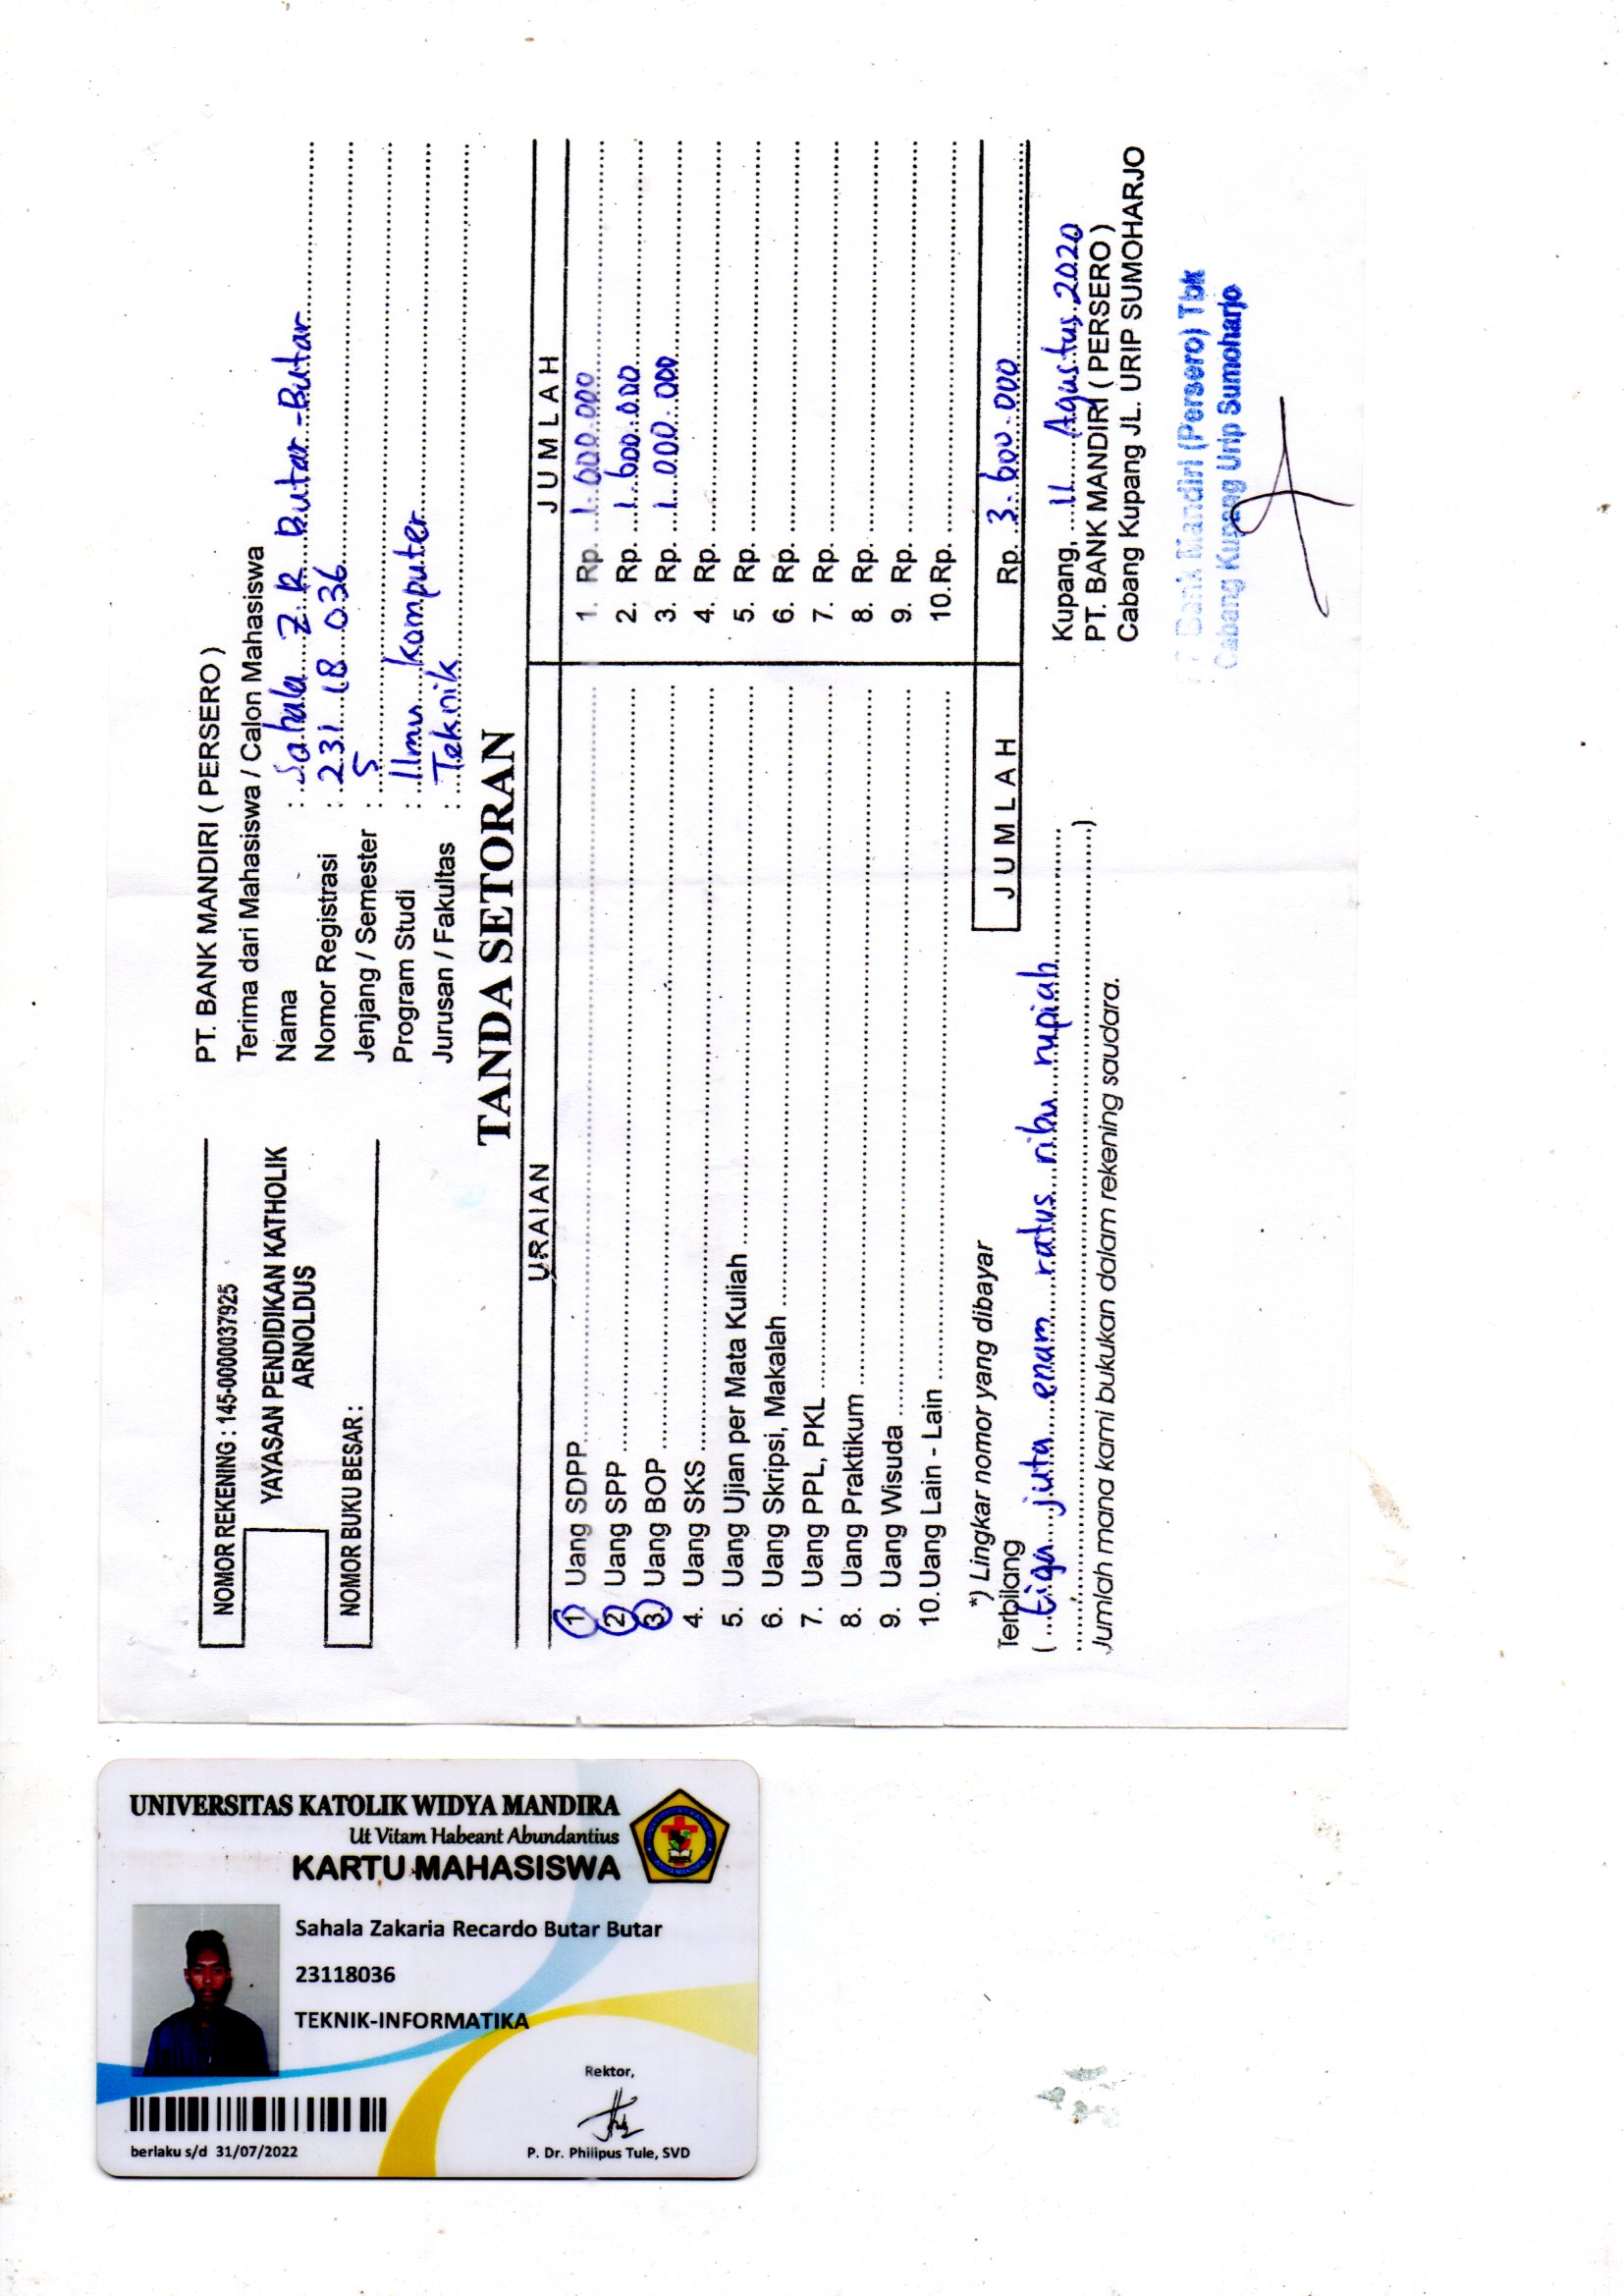 NOMOR REKENING : 145-0000037925
YAYASAN PENDIDIKAN KATHOLIK
ARNOLDUS
NOMOR BUKU BESAR :
PT. BANK MANDIRI ( PERSERO )
Terima dari Mahasiswa / Calon Mahasiswa
Nama : Sahala Z.R Butar-Butar
Nomor Registrasi : 231 18 036
Jenjang / Semester : 5
Program Studi : Ilmu Komputer
Jurusan / Fakultas : Teknik
TANDA SETORAN
URAIAN JUMLAH
1. Uang SDPP 1. Rp. 1.000.000
2. Uang SPP 2. Rp. 1.600.000
3. Uang BOP 3. Rp. 1.000.000
4. Uang SKS 4. Rp.
5. Uang Ujian per Mata Kuliah 5. Rp.
6. Uang Skripsi, Makalah 6. Rp.
7. Uang PPL, PKL 7. Rp.
8. Uang Praktikum 8. Rp.
9. Uang Wisuda 9. Rp.
10. Uang Lain - Lain 10. Rp.
*) Lingkar nomor yang dibayar JUMLAH Rp. 3.600.000
Terbilang
( tiga juta enam ratus ribu rupiah
)
Jumlah mana kami bukukan dalam rekening saudara.
Kupang, 11 Agustus 2020
PT. BANK MANDIRI ( PERSERO )
Cabang Kupang JL. URIP SUMOHARJO
Bank Mandiri (Persero) Tbk
Cabang Kupang Urip Sumoharjo
UNIVERSITAS KATOLIK WIDYA MANDIRA
Ut Vitam Habeant Abundantius
KARTU MAHASISWA
Sahala Zakaria Recardo Butar Butar
23118036
TEKNIK-INFORMATIKA
Rektor,
berlaku s/d 31/07/2022
P. Dr. Philipus Tule, SVD